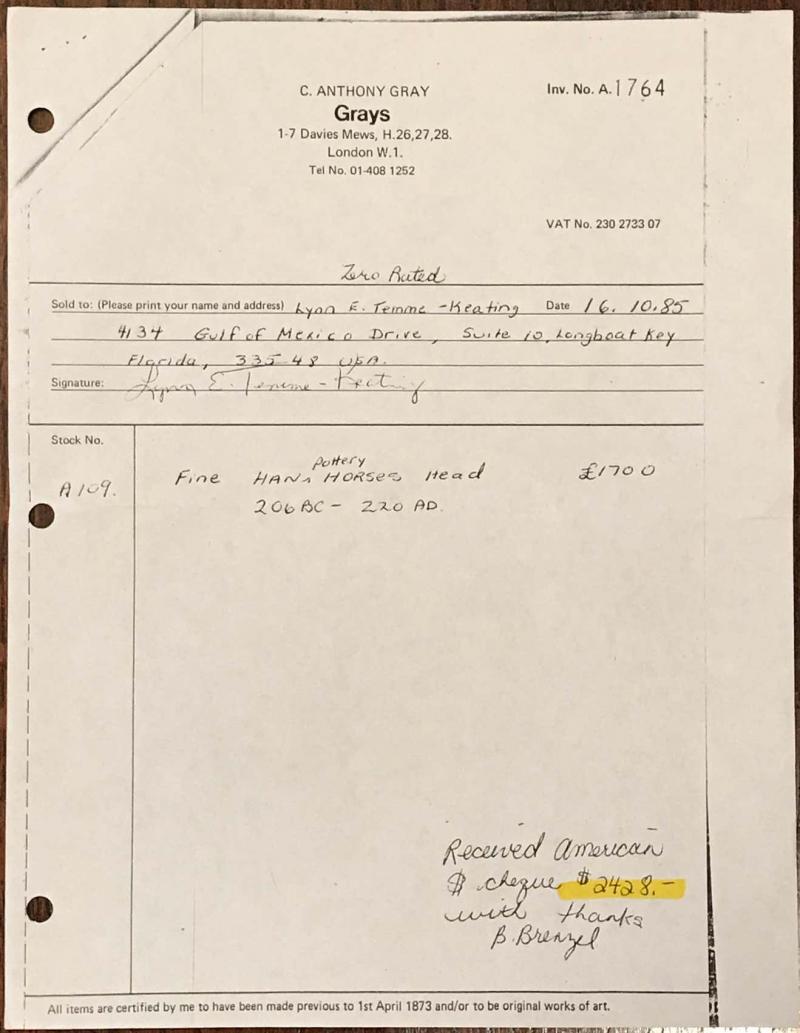 C. ANTHONY GRAY
Inv. No. A. 1764
Grays
1-7 Davies Mews, H.26,27,28.
London W.1.
Tel No. 01-408 1252
VAT No. 230 2733 07
Zero Rated
Sold to: (Please print your name and address) Lynn E. Temme-Keating Date 16.10.85
4134 Gulf of Mexico Drive, Suite 10, Longboat Key
Florida, 33548 USA.
Signature: Lynn E. Temme-Keating
Stock No.
pottery
A109. Fine HAN HORSES Head £1700
206 BC - 220 AD.
Received American
$ cheque $2428.-
with thanks
B. Brenzel
All items are certified by me to have been made previous to 1st April 1873 and/or to be original works of art.